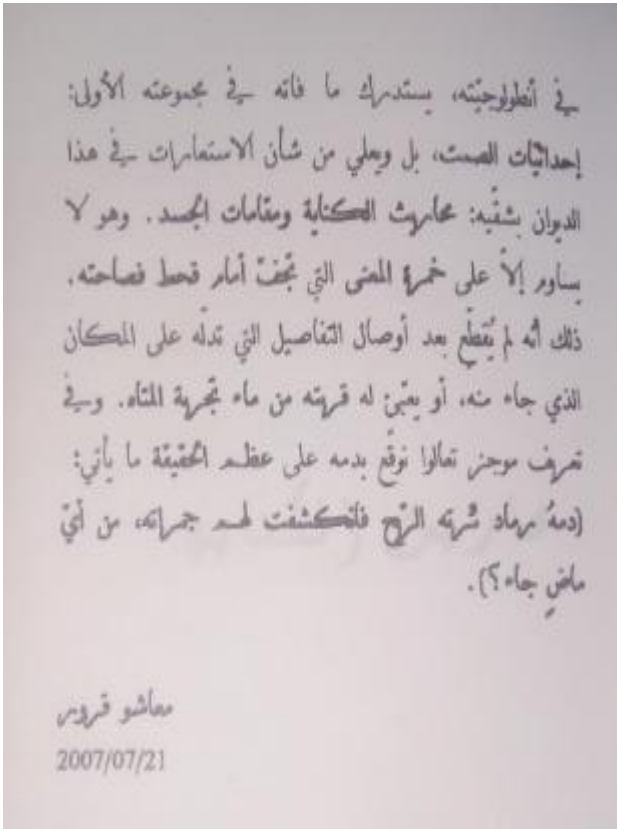 في أنطولوجيّته، يستدرك ما فاته في مجموعته الأولى:
إحداثيّات الصمت، بل ويعلي من شأن الاستعارات في هذا
الديوان بشقّيه: محاريث الكتابة ومقامات الجسد. وهو لا
يساوم إلاّ على خمرة المعنى التي تجفّ أمام قحط فصاحته.
ذلك أنه لم يُقطّع بعد أوصال التفاصيل التي تدلّه على المكان
الذي جاء منه، أو يعبّئ له قربته من ماء تجربة المتاه. وفي
تعريف موجز تعالوا نوقّع بدمه على عظم الحقيقة ما يأتي:
(دمهُ رماد شرّته الريح فانكشفت لهم جمراته، من أيّ
ماضٍ جاء؟).
معاشو قرور
2007/07/21